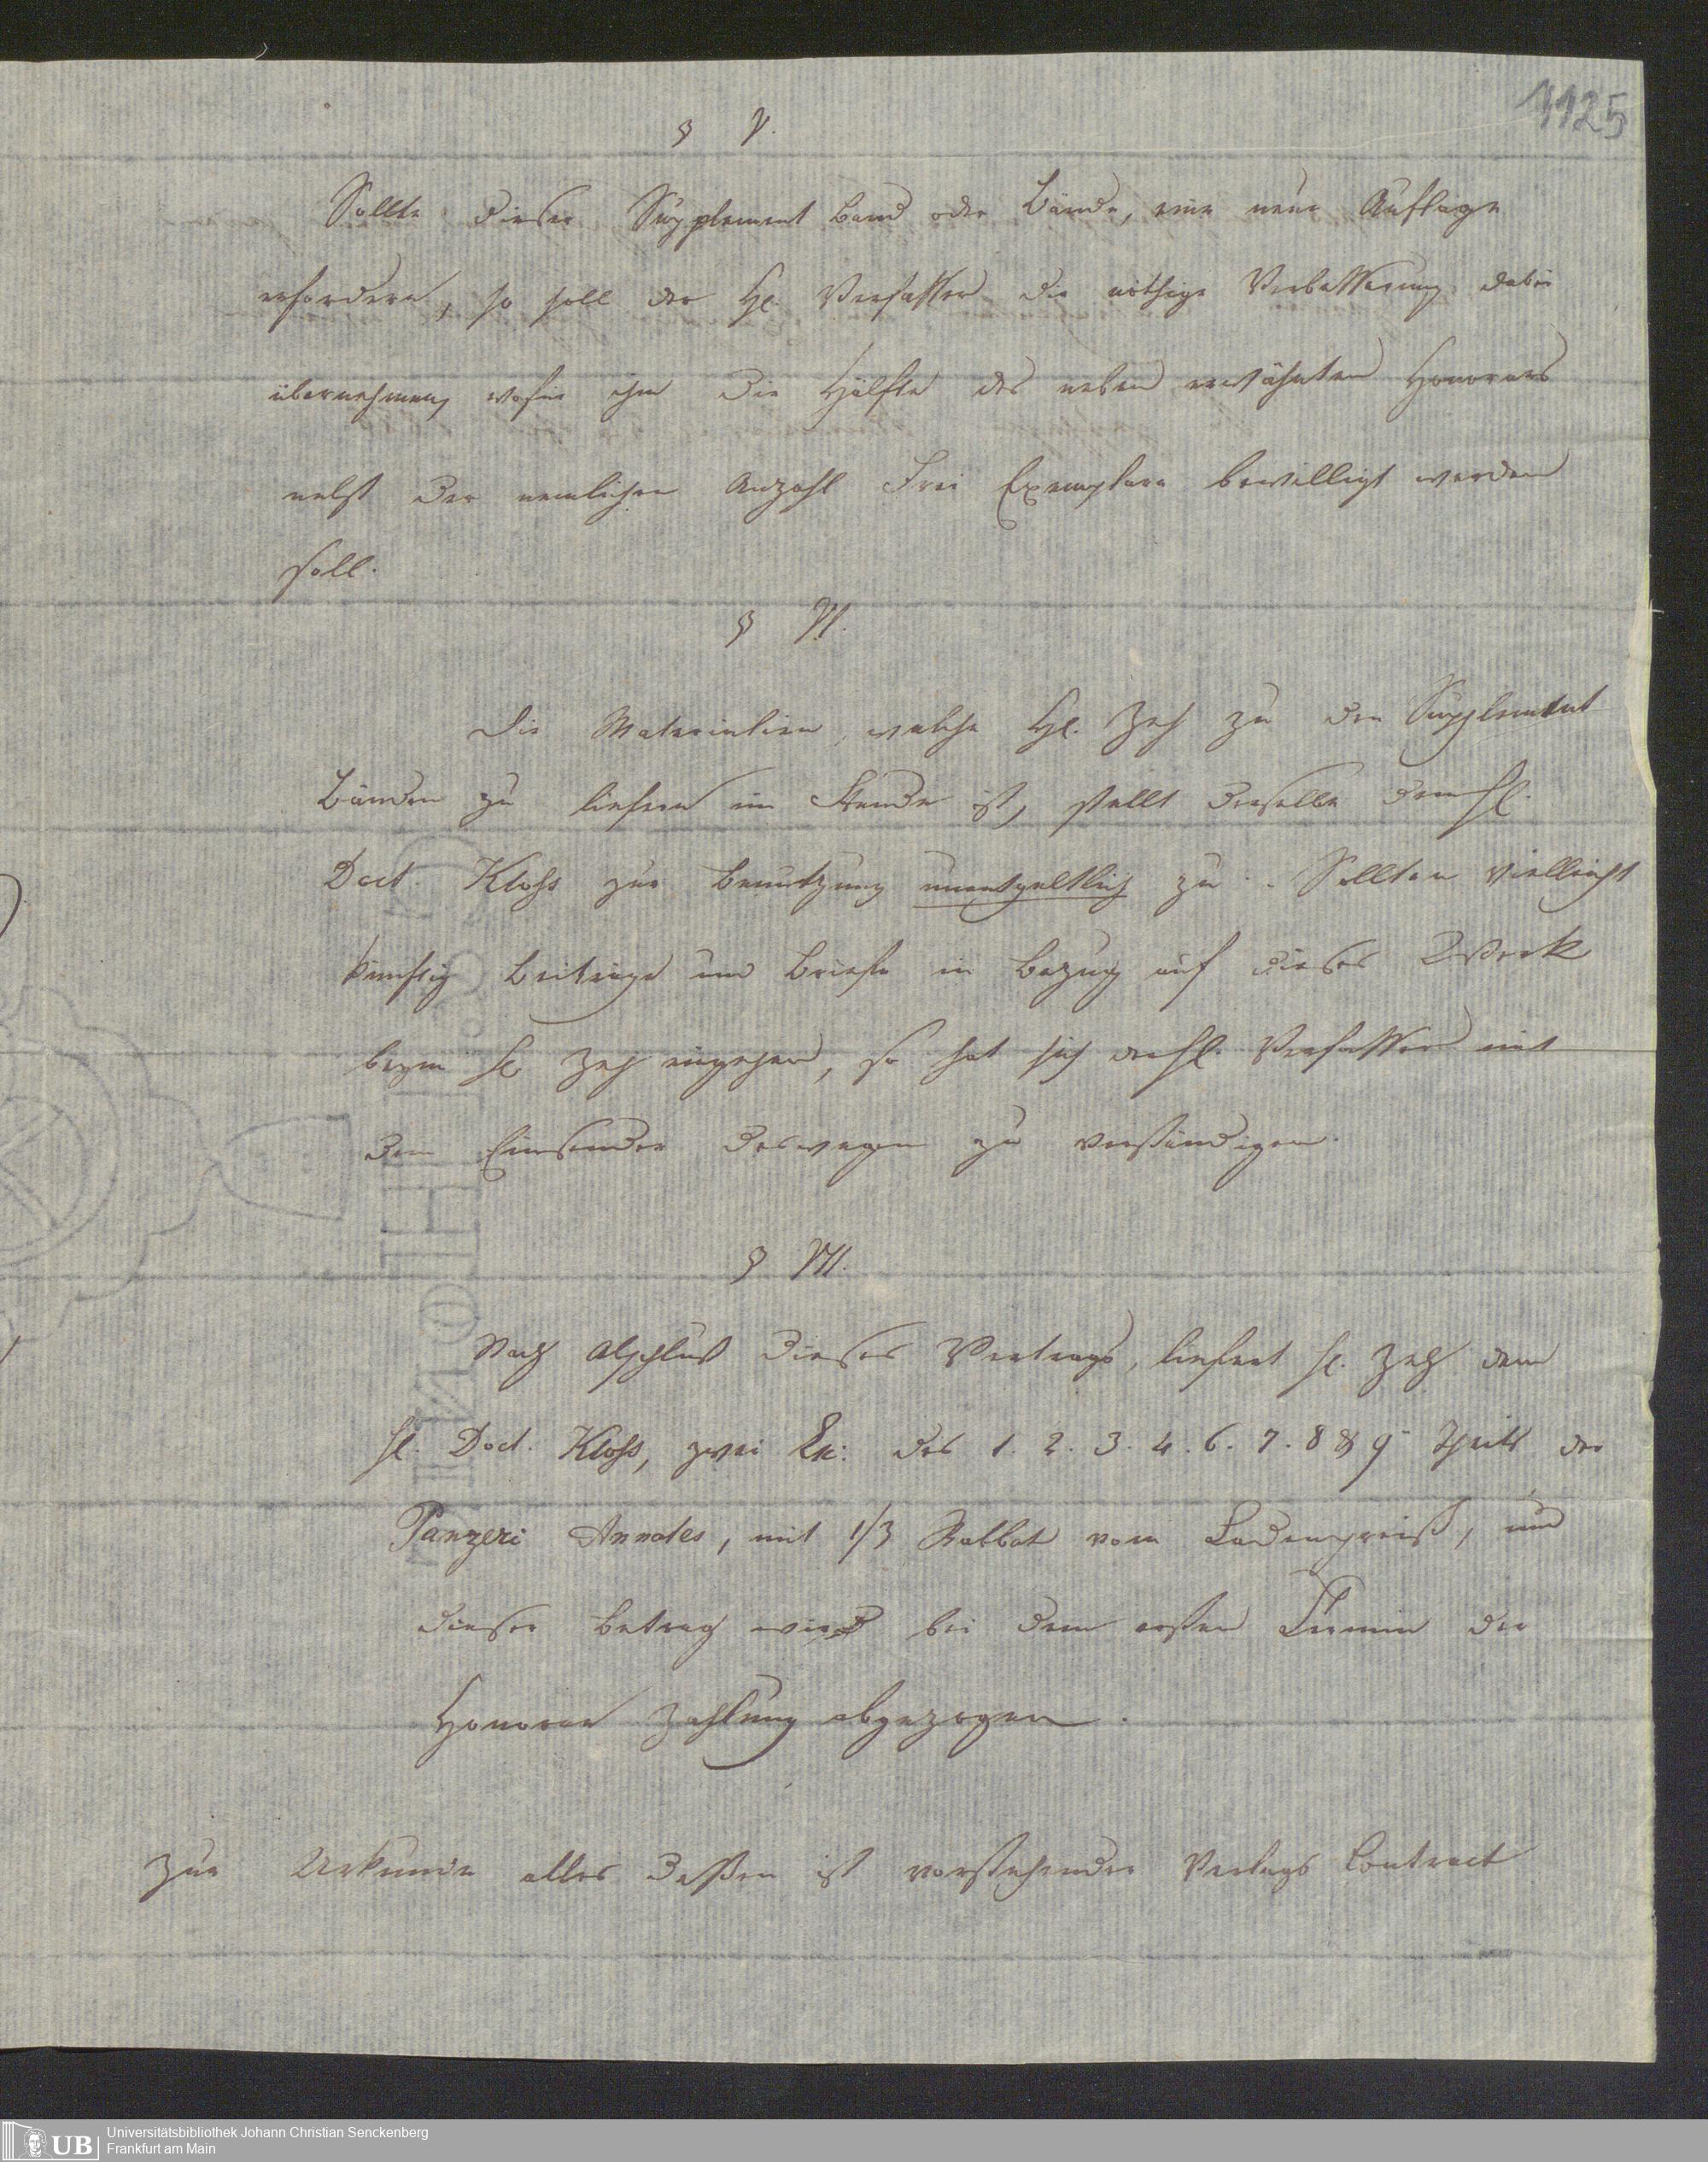 1125
§ V.
Sollte dieser Supplement Band oder Bände, eine neue Auflage
erfordern, so soll der H. Verfasser die nöthige Verbesserung dabei
übernehmen, wofür ihm die Hälfte des neben erwähnten Honorars
nebst der nemlichen Anzahl Frei Exemplare bewilligt werden
soll.
§ VI.
Die Materialien, welche H. Zeh zu den Supplement
Bänden zu liefern im Stande ist, stellt derselbe dem H.
Doct. Kloss zur Benutzung unentgeltlich zu. Sollten vielleicht
künftig Beiträge und Briefe in Bezug auf dieses Werk
beym H. Zeh eingehen, so hat sich der H. Verfasser mit
dem Einsender deswegen zu verständigen.
§ VII.
Nach Abschluß dieses Vertrags, liefert H. Zeh dem
H. Doct. Kloss, zwei Ex: des 1. 2. 3. 4. 6. 7. 8 & 9 Theils der
Panzeri Annales, mit 1/3 Rabbat vom Ladenpreiß, und
dieser Betrag wird bei dem ersten Termin der
Honorar Zahlung abgezogen.
Zur Urkunde alles dessen ist vorstehender Verlags Contract
UB
Universitätsbibliothek Johann Christian Senckenberg
Frankfurt am Main